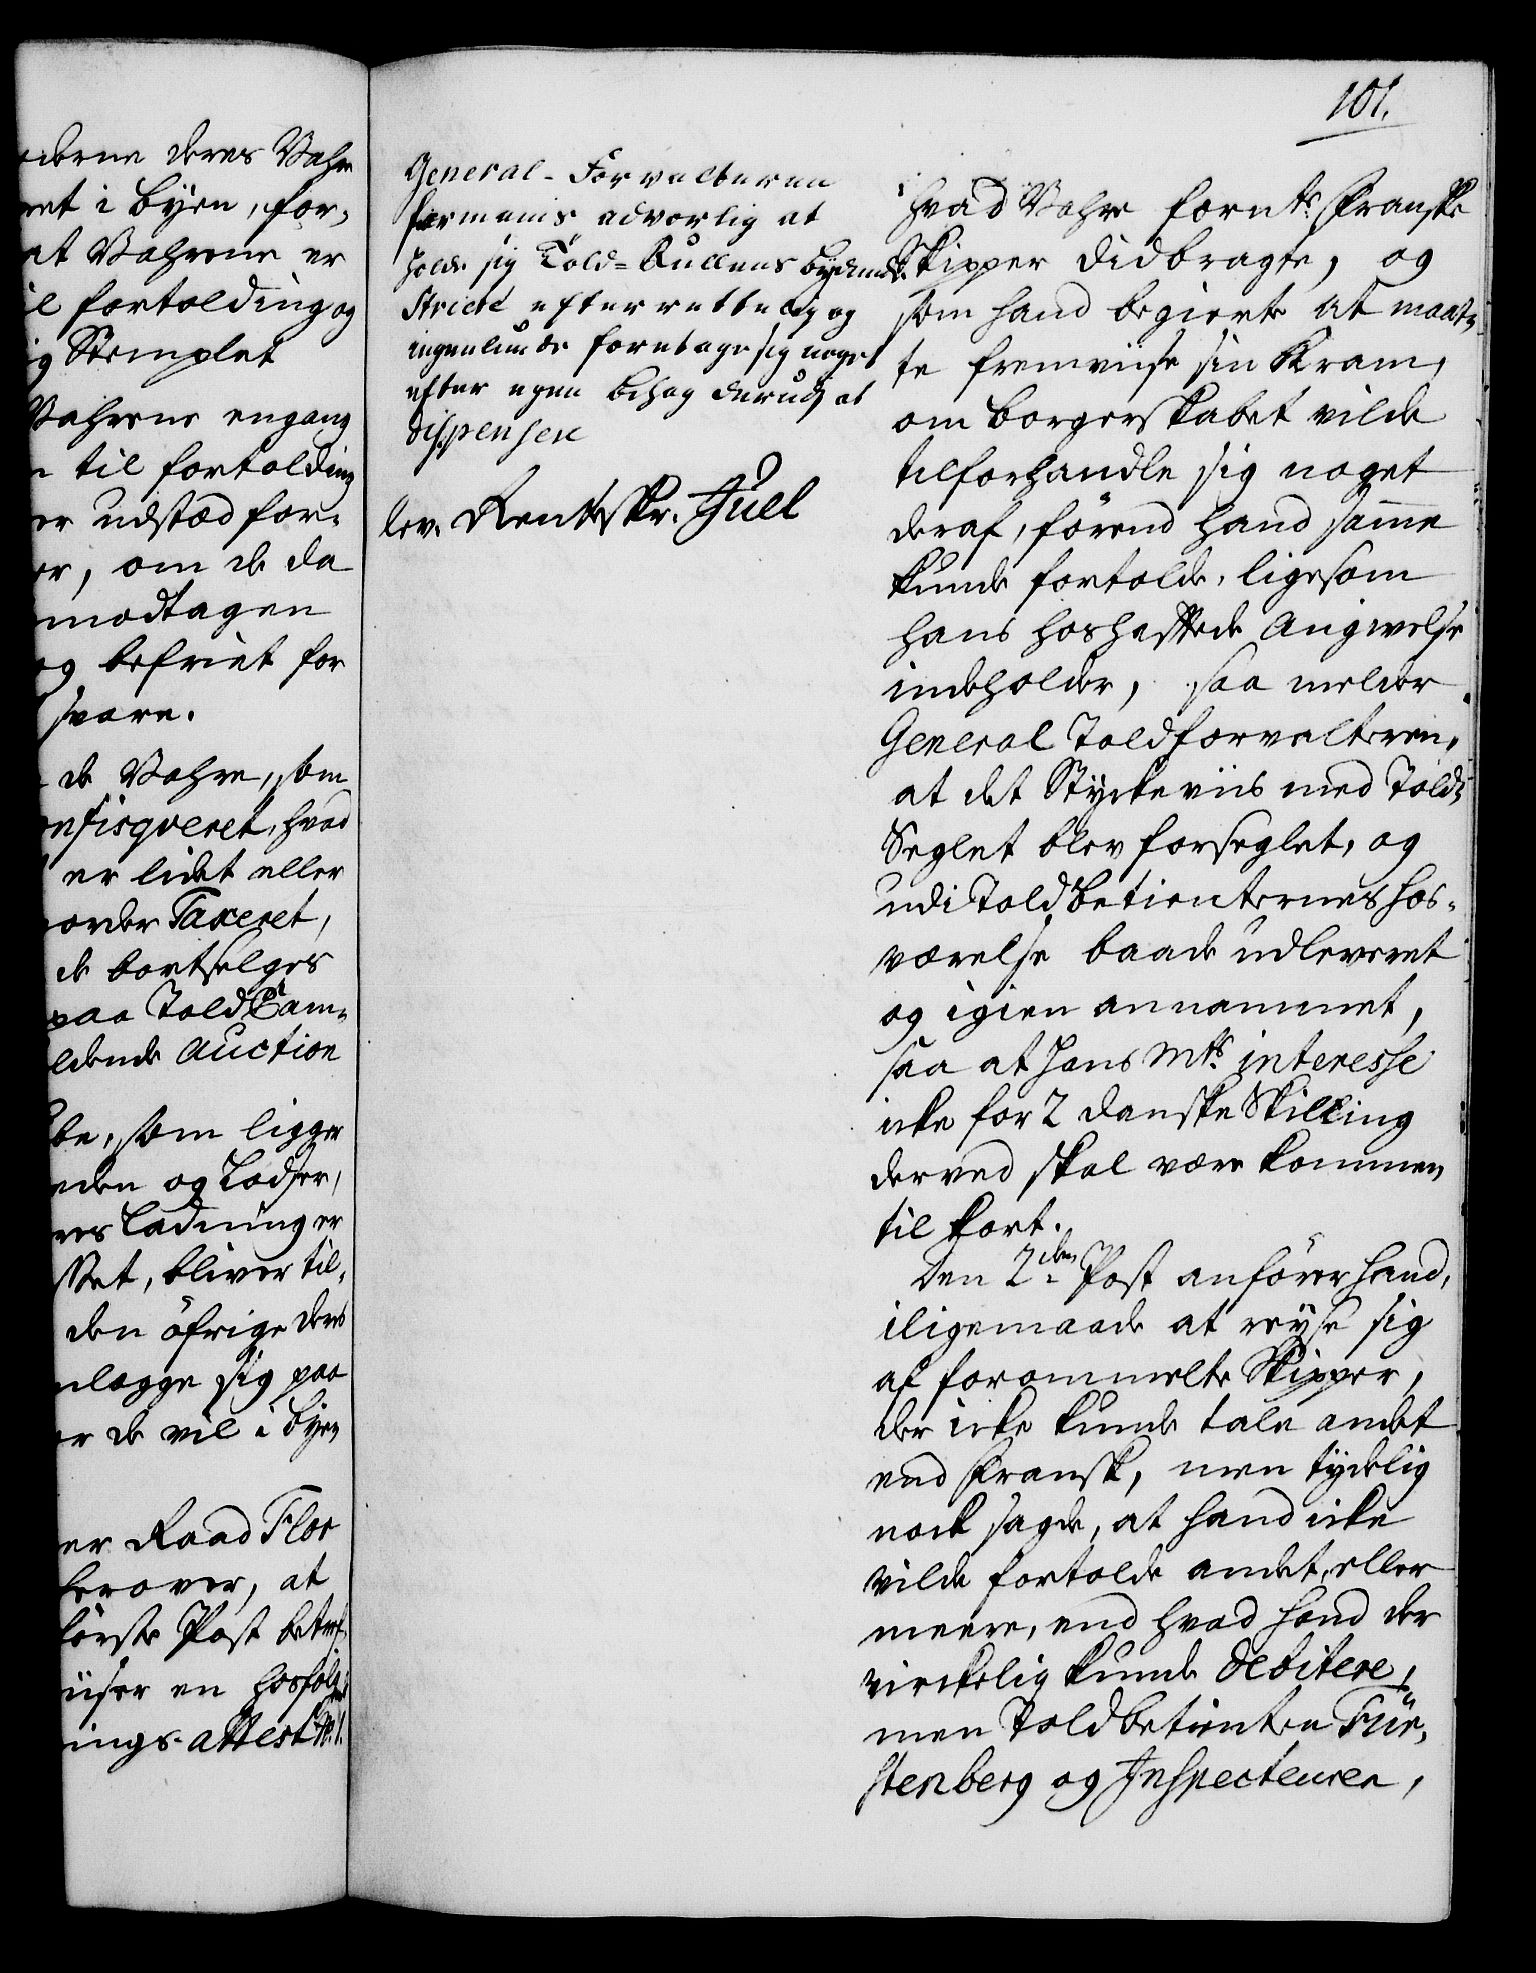 oderne deres Vahre
ret i Byen, for-
at Vahrene er
il fortolding og
ig Stemplet
Vahrene engang
n til fortolding
er udstæd for-
er, om de da
modtagen
og befriet for
svare.
de Vahre, som
onfisqveret, hvad
er lidet eller
vorder Taxeret,
de bortselges
paa Told Cam-
ldende Auction
be, som ligger
eden og Lodser,
res Ladning er
sset, bliver til-
den öfrige deres
nlegge sig paa
er de vil i Byen
er Raad Flor
herover, at
förste Post betref-
iiser en hosfolgende
nings attest N. 1.
101.
General-Forvalteren
formanis advorlig at
holde sig Told-Rullens bydende
Stricte efterrettelig og
ingenlunde foretage sig noget
efter egen behag derudj at
dispensere
lev. Rentskr. Juel
hvad Vahre fornte Franske
Skipper didbragte, og
som hand begierte at maat-
te fremviise sin Kram,
om Borgerskabet vilde
tilforhandle sig noget
deraf, førend hand samme
kunde fortolde, ligesom
hans hoshæftede Angivelse
indeholder, saa melder
General Toldforvalteren,
at det Stÿckeviis med Told-
Seglet blev forseglet, og
udi Toldbetienternes hos-
værelse baade udleveret
og igien annammet,
saa at Hans Mts. interesse
icke for 2 danske Skilling
derved skal være kommen
til kort.
Den 2den Post anförer hand,
iligemaade at reÿse sig
af forommelte Skipper,
der icke kunde tale andet
end Fransk, men tÿdelig
nock sagde, at hand icke
vilde fortolde andet, eller
meere, end hvad hand der
virckelig kunde debitere,
men Toldbetienten Für-
stenberg og Inspecteuren,